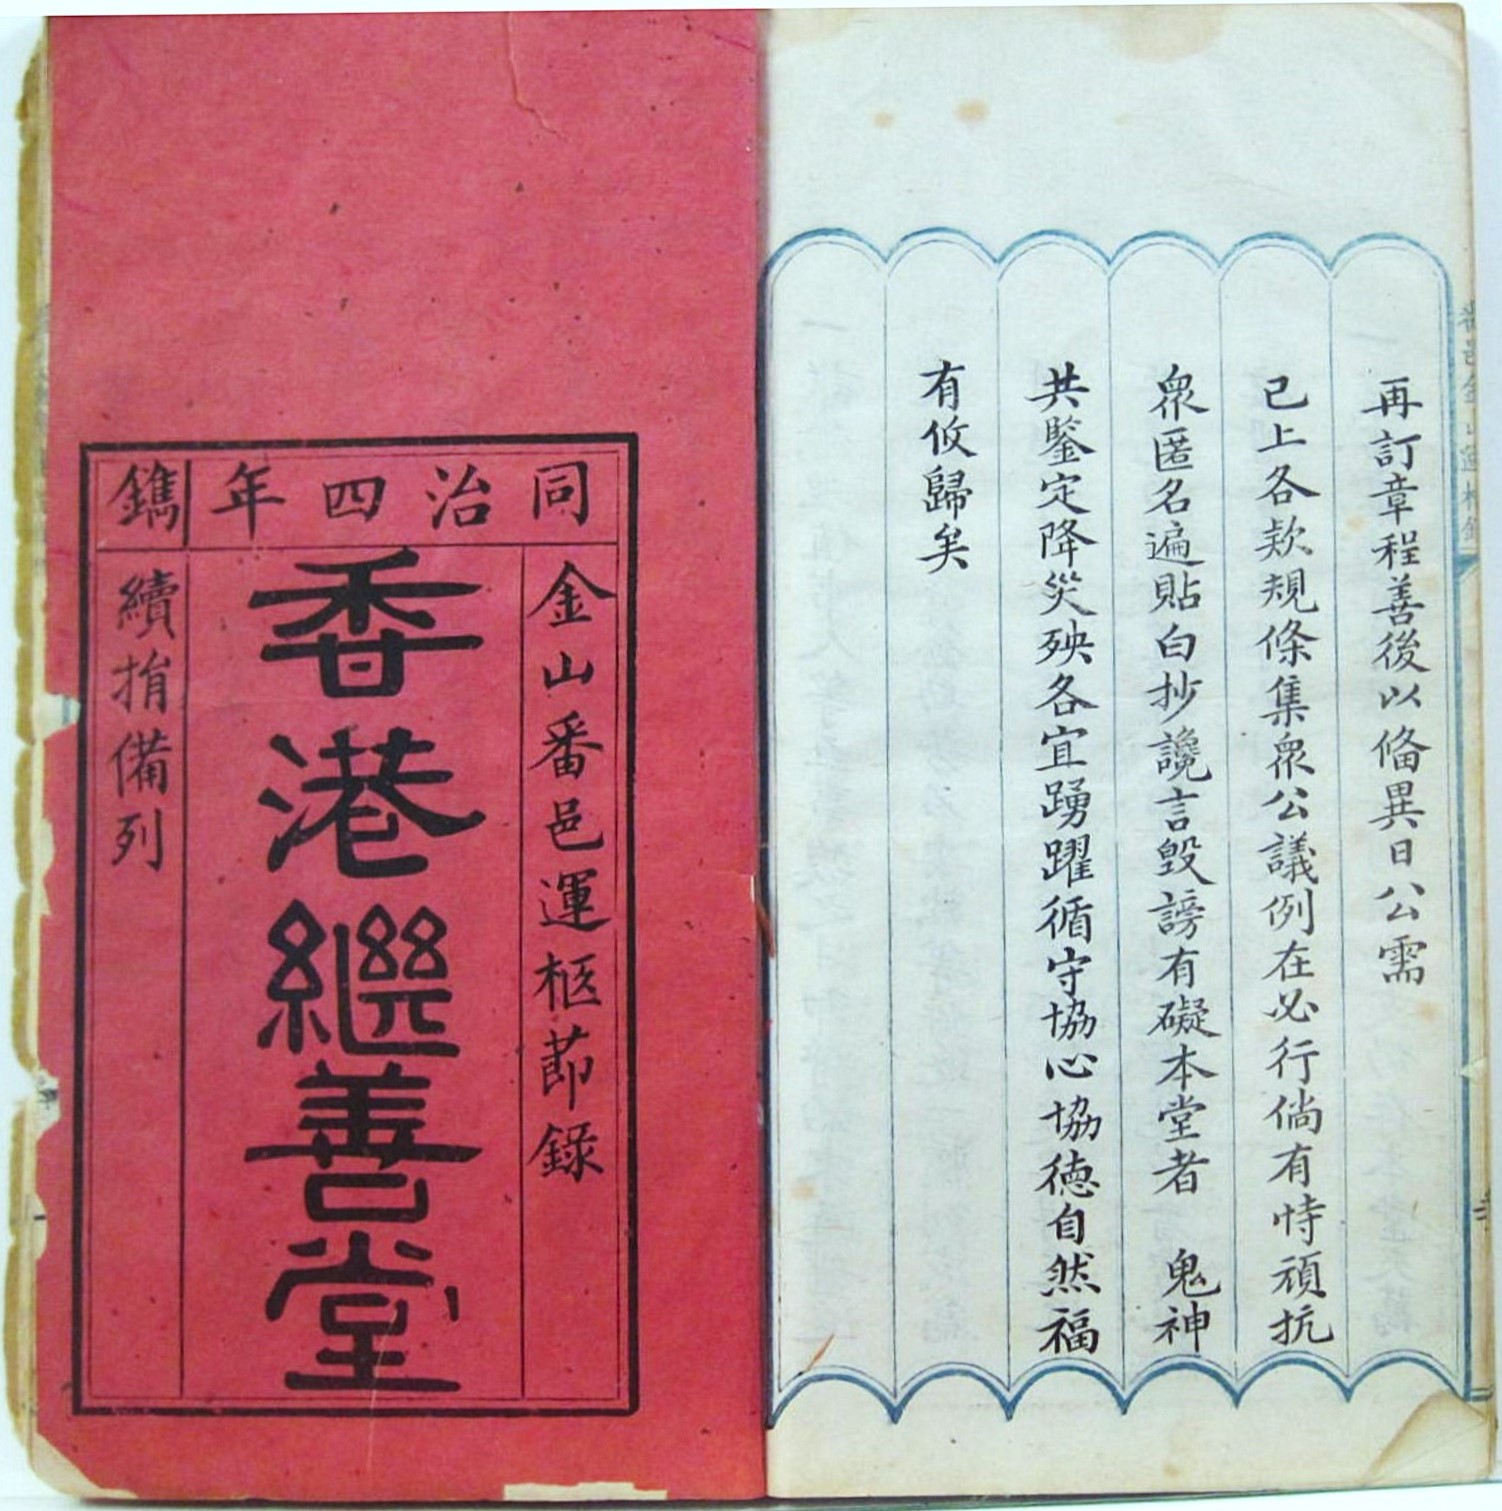 再訂章程善後以俻異日公需
已上各欵規條集眾公議例在必行倘有恃頑抗
眾匿名遍貼白抄讒言毀謗有礙本堂者　鬼神
共鑒定降災殃各宜踴躍循守協心協德自然福
有攸歸矣
同治四年鐫
金山番邑運柩莭錄
香港繼善堂
續捐備列